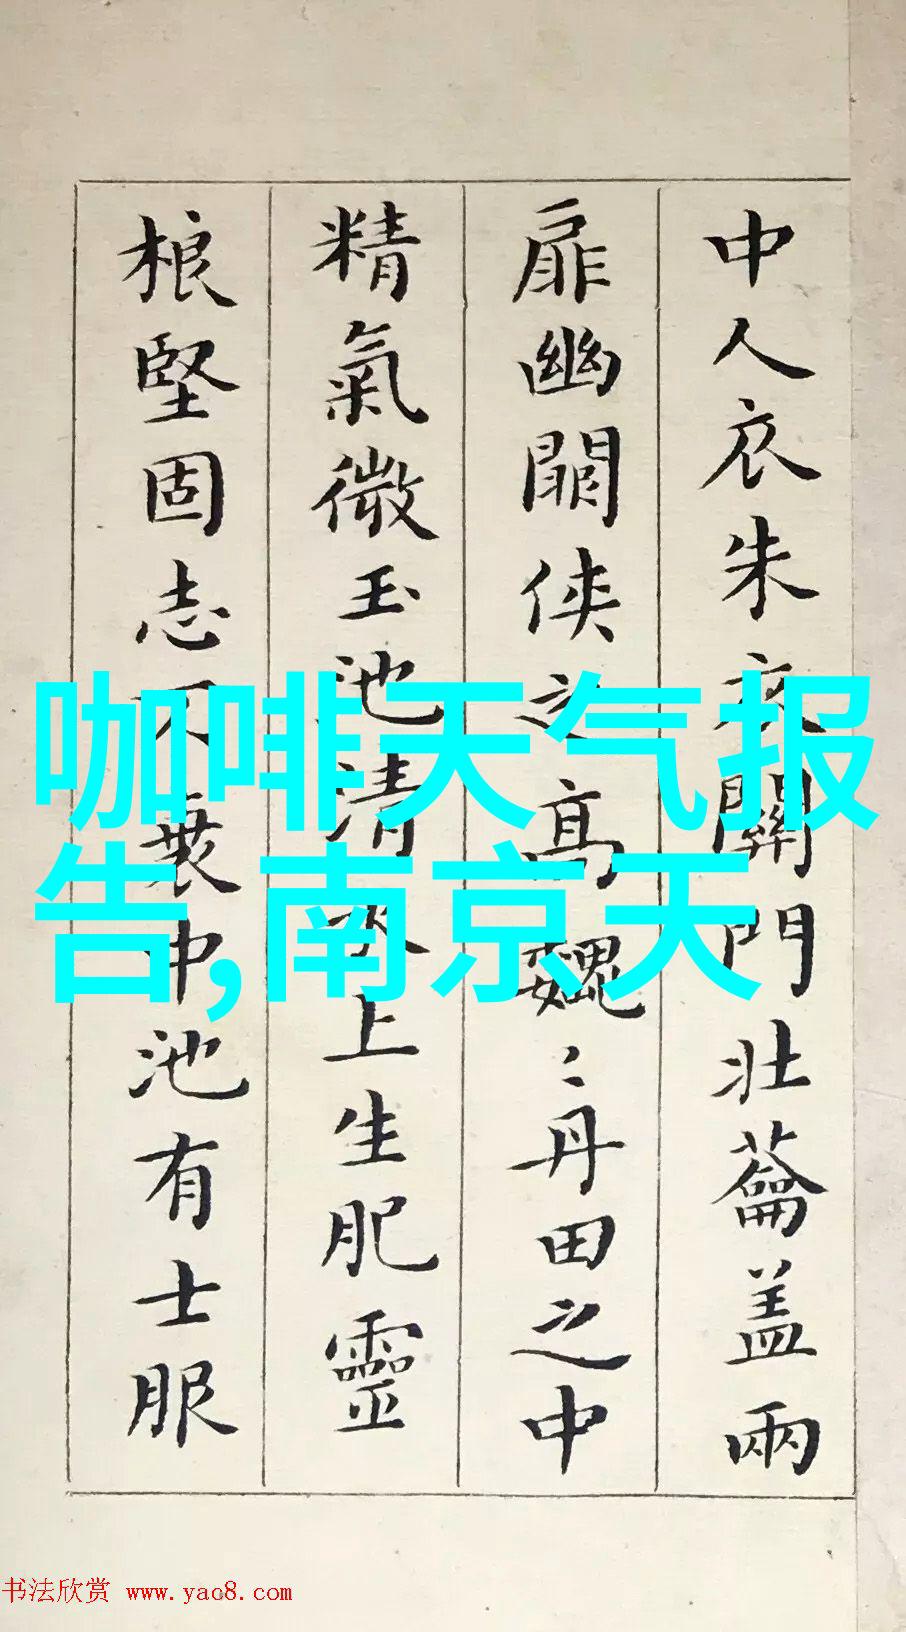 中人衣朱衣關門壯蘥盖兩
扉幽闕侠之高巍〻丹田之中
精氣微玉池清水上生肥靈
根堅固志不衰中池有士服
咖啡天气报
告,南京天
书法欣赏 www.yac8.com